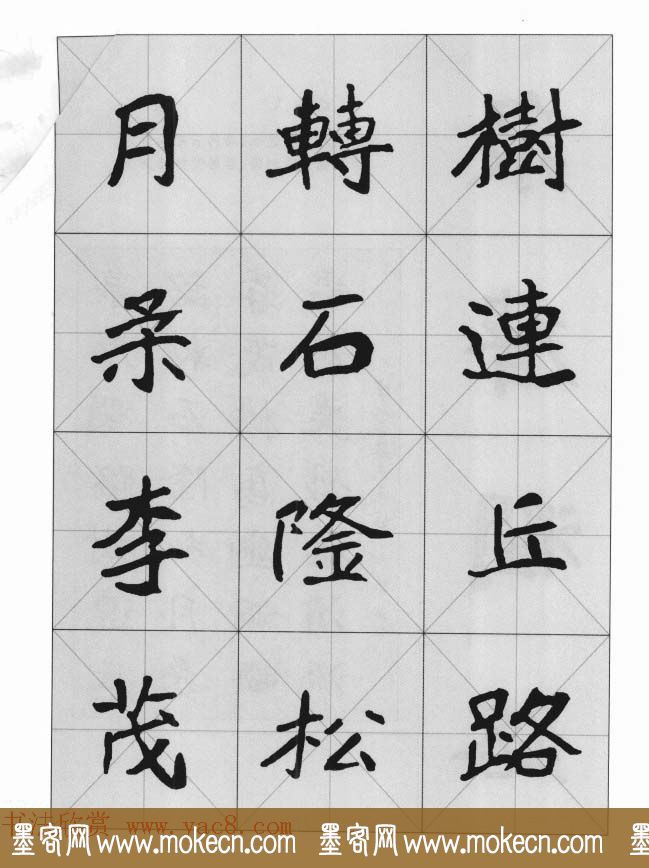 樹連丘路
轉石松
月柔李茂
书法欣赏 www.yac8.com
墨客网 www.mokecn.com 墨客网 www.mokecn.com